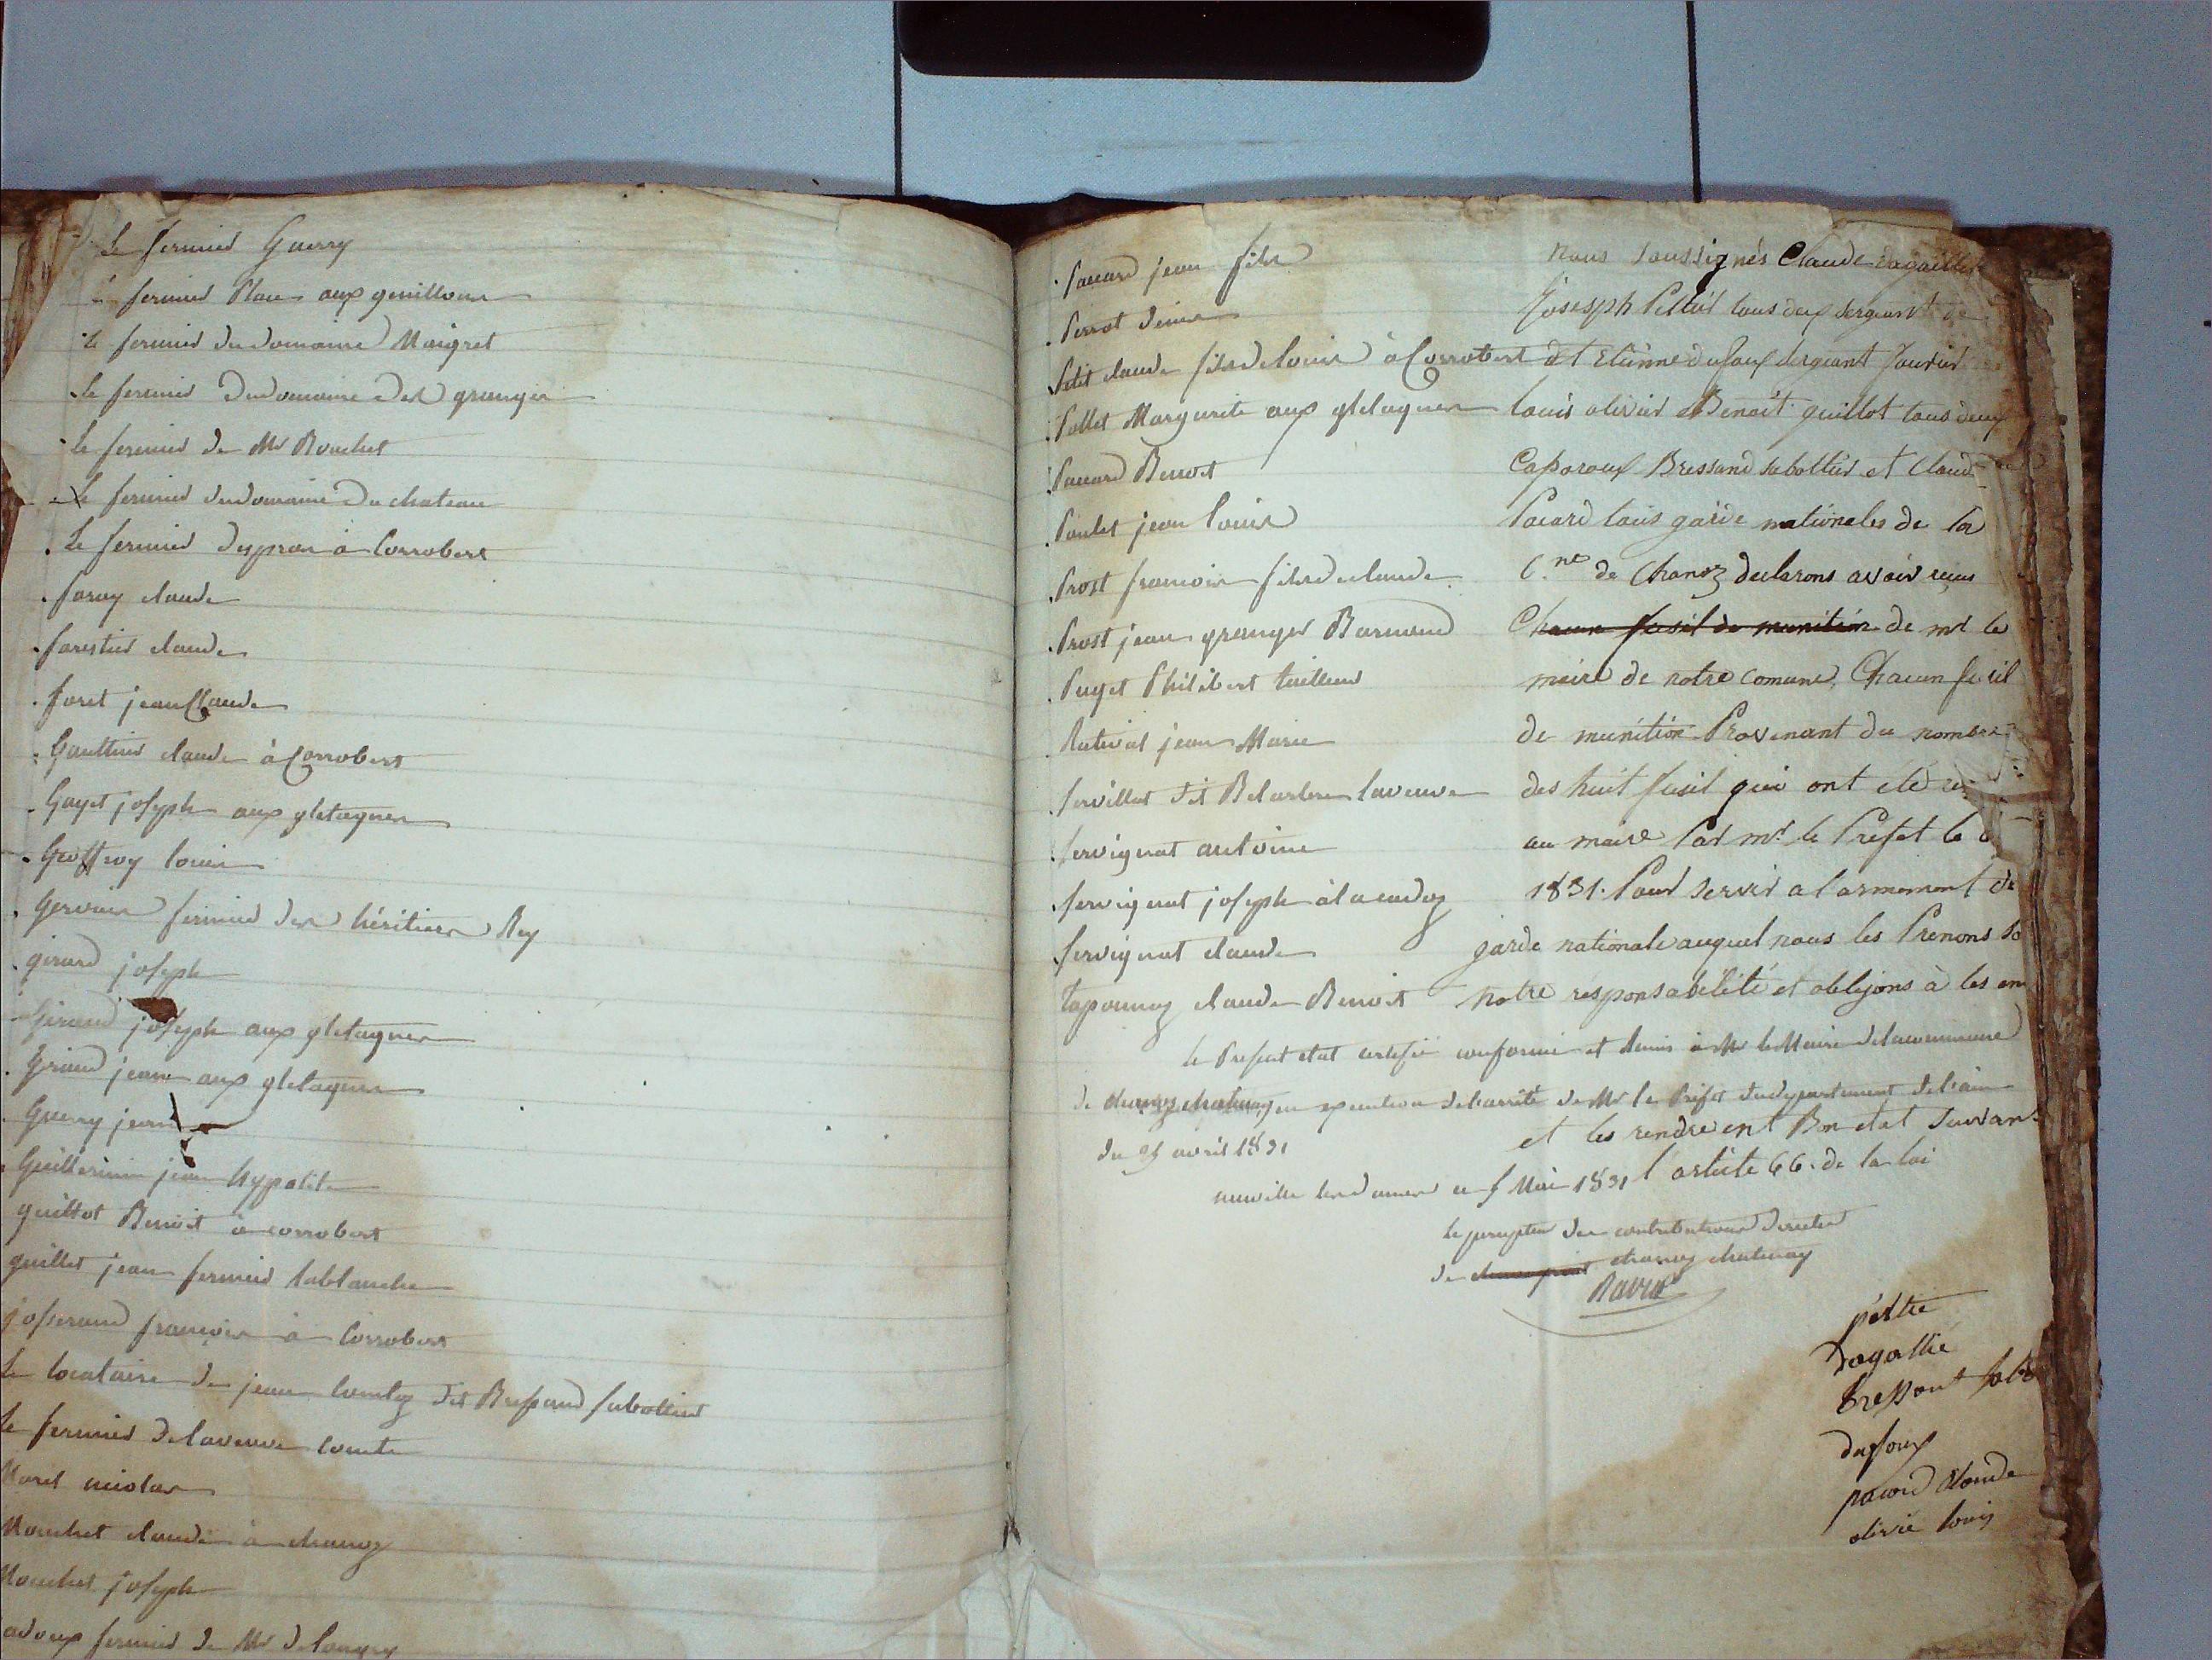 Le fermier Guerry
fermier Place aux guillous
Le fermier dudomaine Maigret
Le fermier Dudomaine des granges
Le fermier de Mr Bouchet
Le fermier dudomaine Du chateau
Le fermier despras à Corrobert
faray claude
forestier claude
foret jean Claude
Gauthier claude à Corrobert
Gayet joseph aux gletagnes
Geoffroy louis
Gervais fermier des héritiers Rey
girard joseph
Giraud joseph aux gletagnes
Giraud jean aux gletagnes
Guerry jean
Guillermin jean hypolite
guillot Benoit à corrobert
guillet jean fermier lablanche
josserand françois à Corrobert
Le locataire de jean comtez dit Bressand sabottier
Le fermier delaveuve comte
Morel nicolas
Mouchet claude à chanoz
Mouchet joseph
fermier de Mr
Pacard jean fils
Perrot denis
Petit claude fils de louis à Corrobert
Pollet Margurite aux gletagnes
Pacard Benoit
Poulet jean louis
Prost françois fils declaude
Prost jean granger Barmond
Puget Philibert tailleur
Rativat jean Marie
servillat dit laveuve
servignat antoine
servignat joseph
servignat claude
taponnoz claude Benoit
Nous soussignés Claude dagaillet
Josesph Peltié tous deux sergeant de
et Etienne dufoux sergeant fourier
louis olivier et Benoit guillot tous deux
Caporoux Bressand sabottier et Claude
Pacard tous garde nationales de la
C.ne de Chanoz declarons avoir reçus
Chacun fusil de munition de mr le
maire de notre comune, Chacun fusil
de munition Provenant du nombre
des huit fusil qui ont été
au maire Par mr le Prefet le
1831. Pour servir a l'armement de
garde nationale auquel nous les Prenons
notre résponsabilité et oblijons à les
le Present etat certifié conforme et remis à Mr le Maire delacommune
de chanoz chatenay en execution de l'arrêté de Mr le Préfet dudepartement de l'ain
du 25 avril 1831
et les rendre ent Bon etat suivant
l'article 66. de la loi
neuville les dames ce 5 Mai 1831
le percepteur des contributions directes
de chanoz chatenay
David
peltie
dagallie
bressant
dufoux
pacard Claude
olivié louis